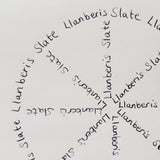 Llanberis Slate Llanberis Slate
Llanberis Slate
Llanberis Slate
Llanberis Slate
Llanberis
Llanberis
Llanberis
Slate